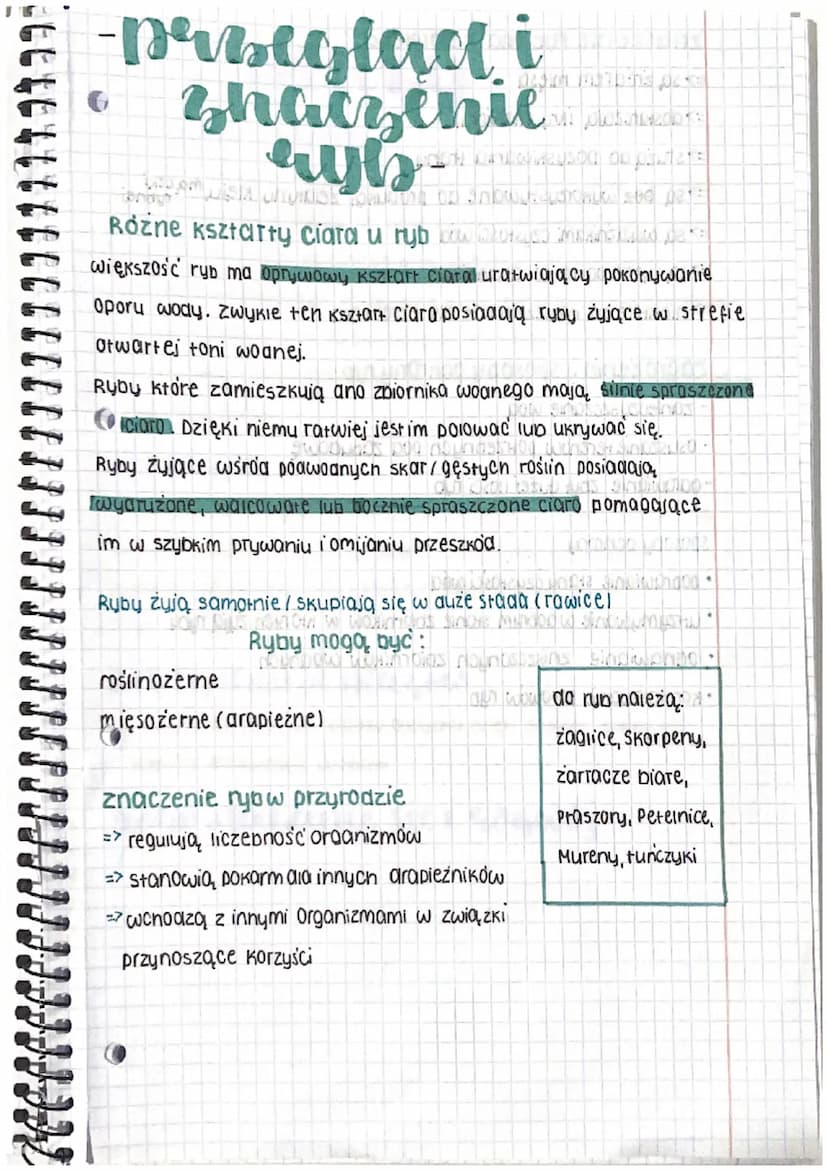 -przegląd i
znaczenie
ryb-
Różne kształty ciała u ryb
większość ryb ma opływowy kształt ciała ułatwiający pokonywanie
oporu wody. zwykle ten kształt ciała posiadają ryby żyjące w strefie
otwartej toni wodnej.
Ryby które zamieszkują dno zbiornika wodnego mają silnie spłaszczone
ciało. Dzięki niemu łatwiej jest im polować lub ukrywać się.
Ryby żyjące wśród podwodnych skał/gęstych roślin posiadają
wydłużone, walcowate lub bocznie spłaszczone ciało pomagające
im w szybkim pływaniu i omijaniu przeszkód.
Ryby żyją samotnie/skupiają się w duże stada (ławice)
Ryby mogą być:
roślinożerne
mięsożerne (drapieżne)
do ryb należą:
żaglice, skorpeny,
żarłacze białe,
Płaszczki, Petelnice,
Mureny, tuńczyki
znaczenie ryb w przyrodzie
=> regulują liczebność organizmów
=> stanowią pokarm dla innych drapieżników
=> wchodzą z innymi organizmami w związki
przynoszące korzyści